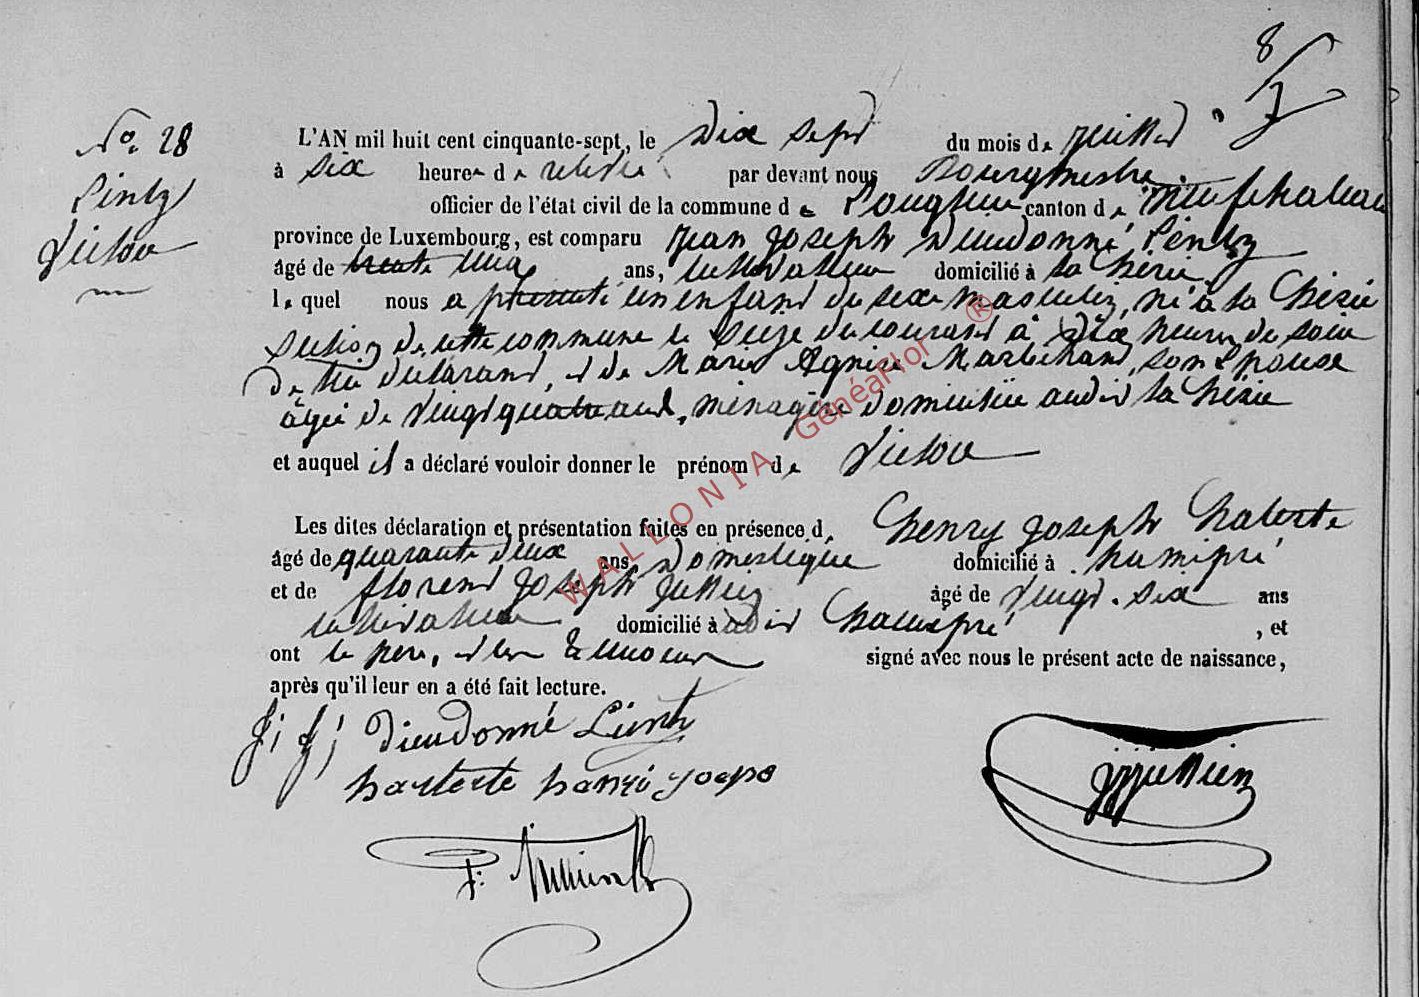 8
N°. 28
Lintz
Victor
L'AN mil huit cent cinquante-sept, le Dix sept du mois de juillet
à Six heures de relevée par devant nous Bourgmestre
officier de l'état civil de la commune de Longlier canton de Neufchateau
province de Luxembourg, est comparu Jean Joseph Dieudonné Lintz
âgé de trente cinq ans, cultivateur domicilié à la Chérie
le quel nous a présenté un enfant du sexe masculin, né à la Chérie
section de cette commune le seize du courant à Dix heures du soir
de lui déclarant, et de Marie Agnise Maréchand, son Epouse
âgée de vingt quatre ans, ménagère domiciliée audit la Chérie
et auquel il a déclaré vouloir donner le prénom de Victor
Les dites déclaration et présentation faites en présence de Henry Joseph
âgé de quarante deux ans, Domestique domicilié à hamipré
et de florent Joseph Jullien âgé de vingt-six ans
cultivateur domicilié à audit hamipré , et
ont le père, et les témoins signé avec nous le présent acte de naissance,
après qu'il leur en a été fait lecture.
J; J; Dieudonné Lintz
WALLONIA GénéaFlor ®